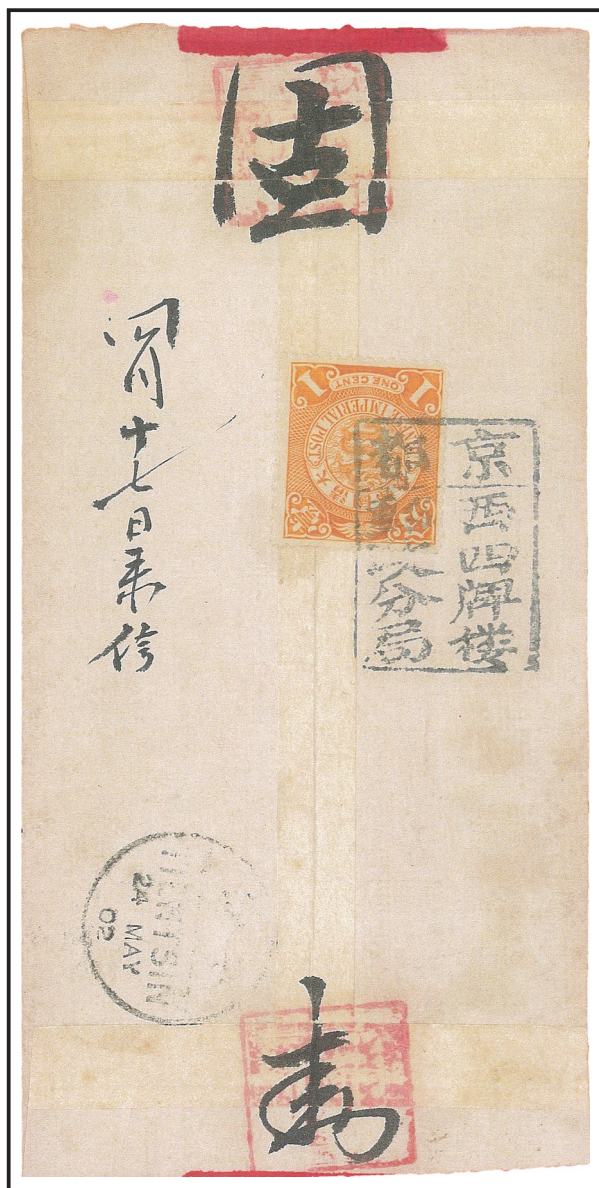 固
四月十七日来信
1 ONE CENT 1
IMPERIAL POST
京西四牌楼
都郵政分局
TIENTSIN
24 MAY
02